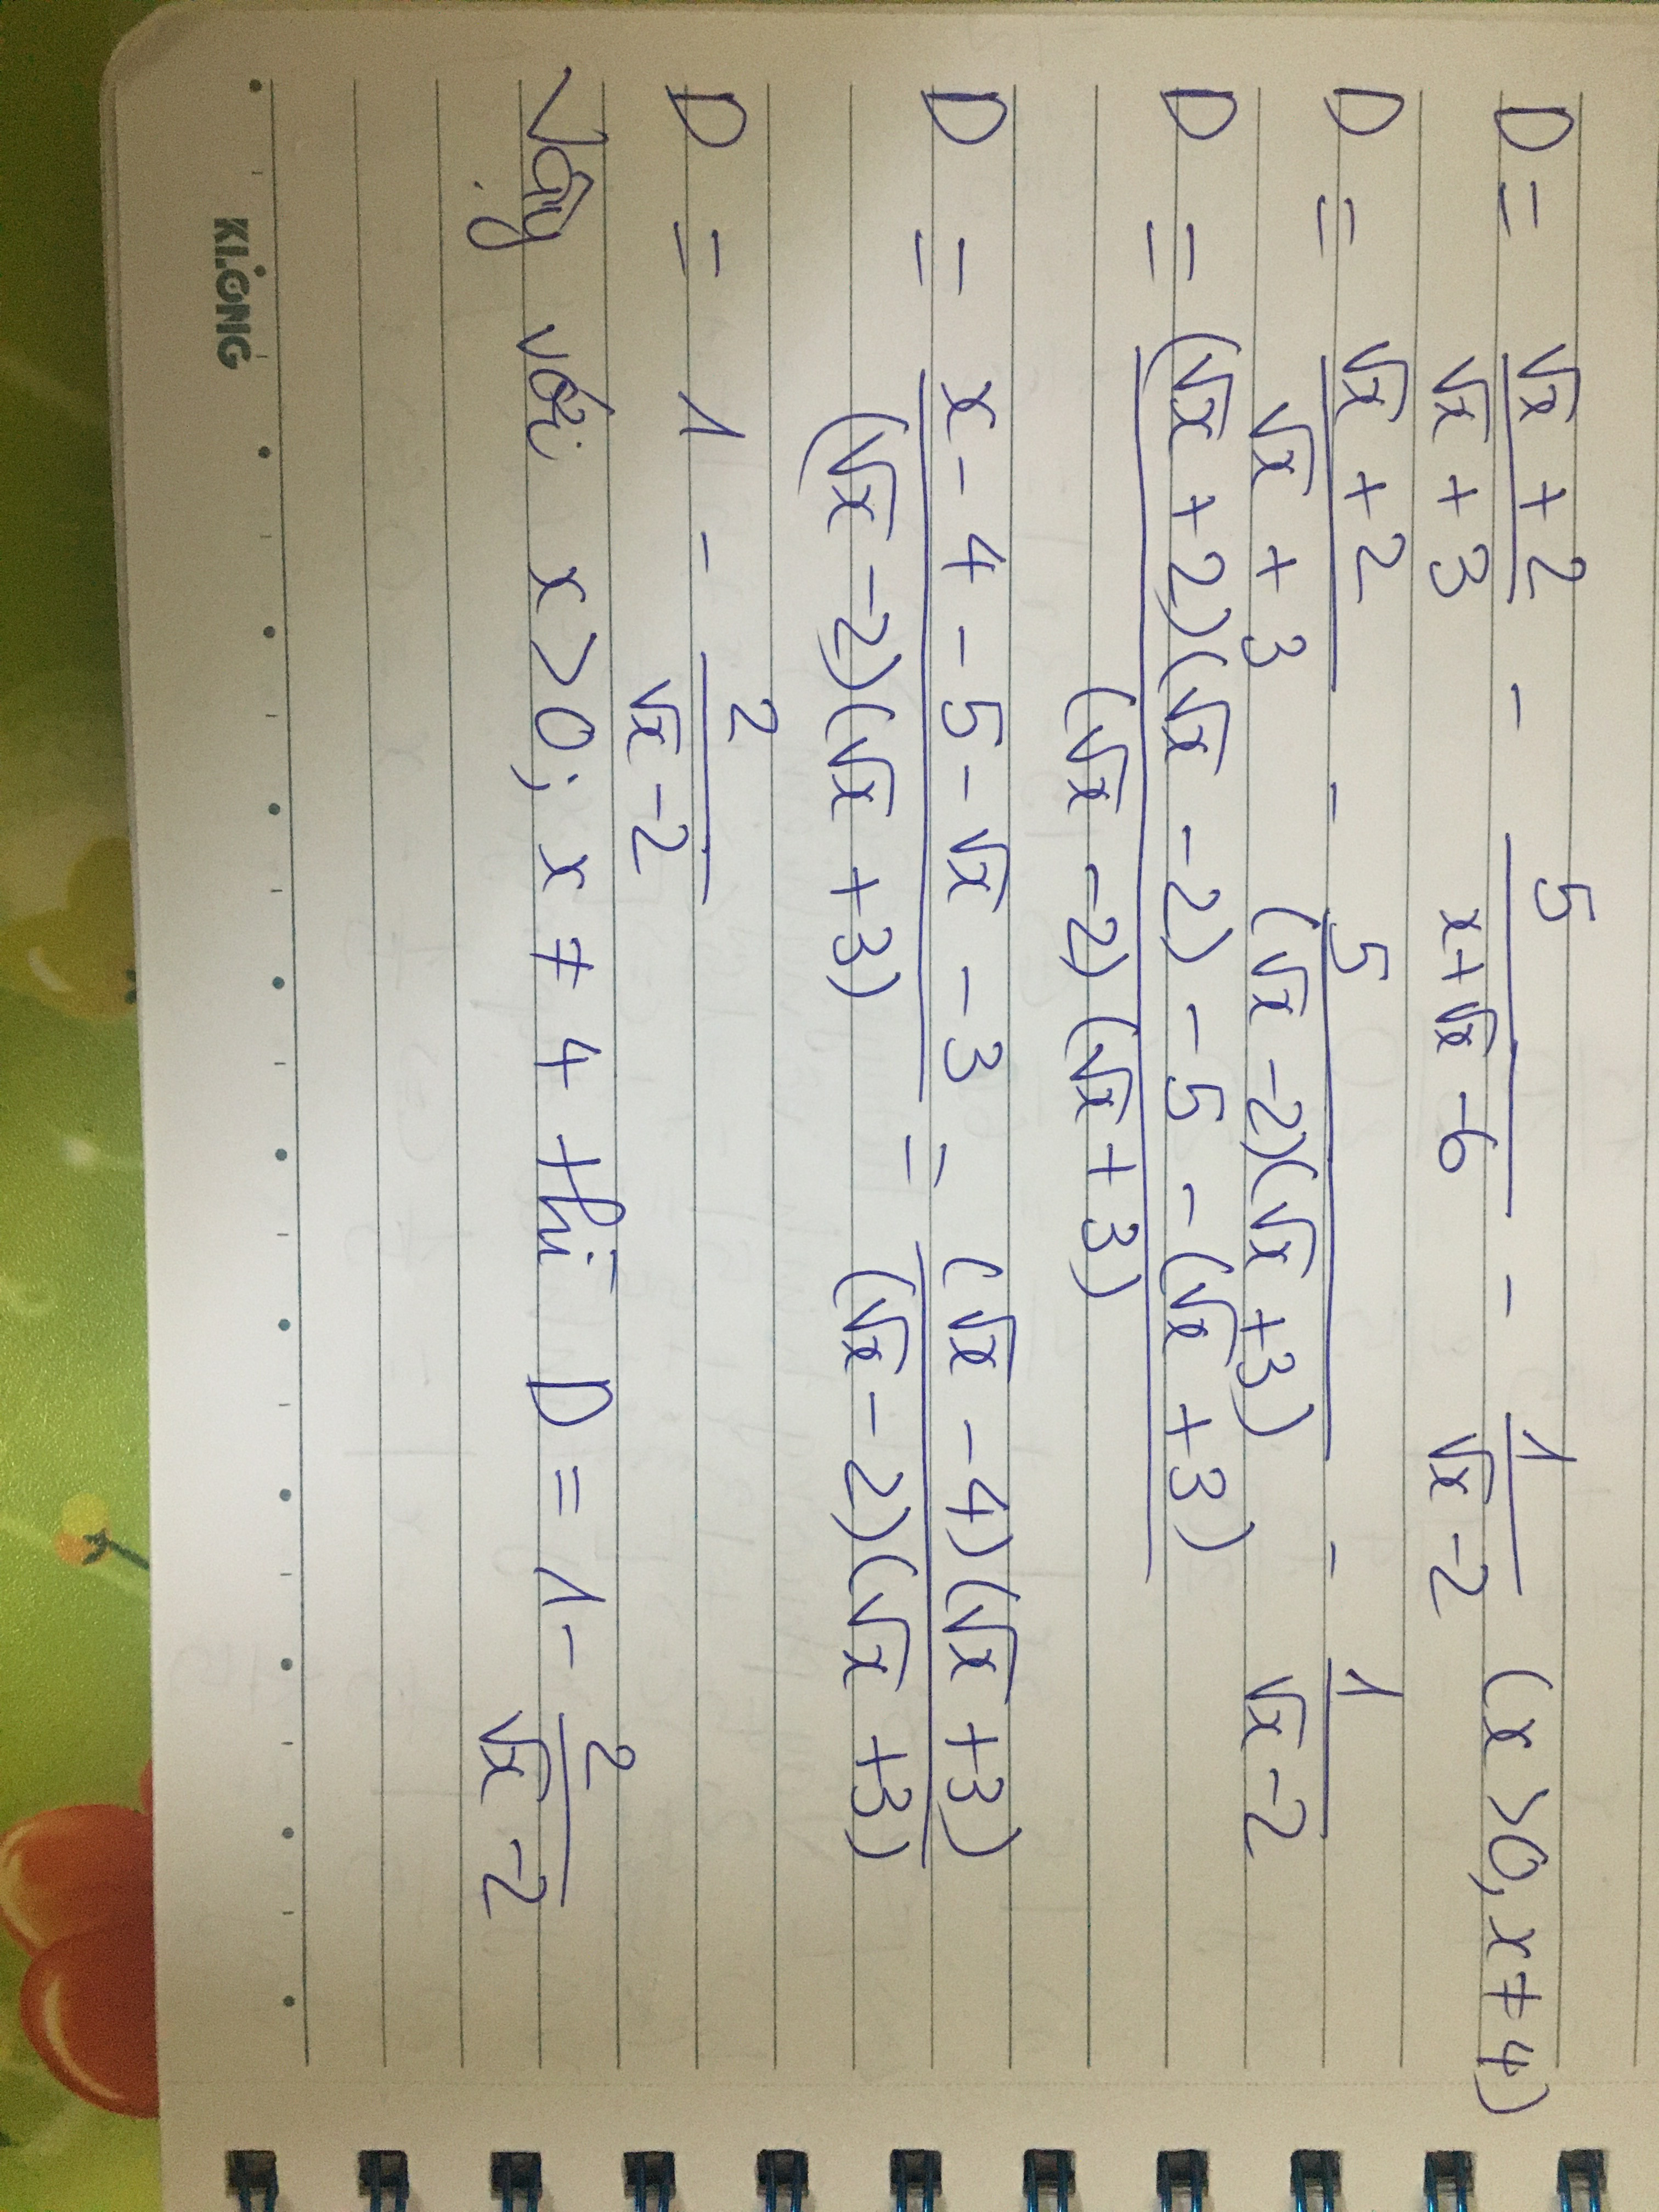 D = (√x + 2)/(√x + 3) - 5/(x+√x - 6) - 1/(√x - 2) (x >0, x ≠ 4)
D = (√x + 2)/(√x + 3) - 5/((√x - 2)(√x + 3)) - 1/(√x - 2)
D = ((√x + 2)(√x - 2) - 5 - (√x + 3))/((√x - 2)(√x + 3))
D = (x - 4 - 5 - √x - 3)/((√x - 2)(√x + 3)) = ((√x - 4)(√x + 3))/((√x - 2)(√x + 3))
D = 1 - 2/(√x - 2)
Vậy với x > 0; x ≠ 4 thì D = 1 - 2/(√x - 2)
KLONG